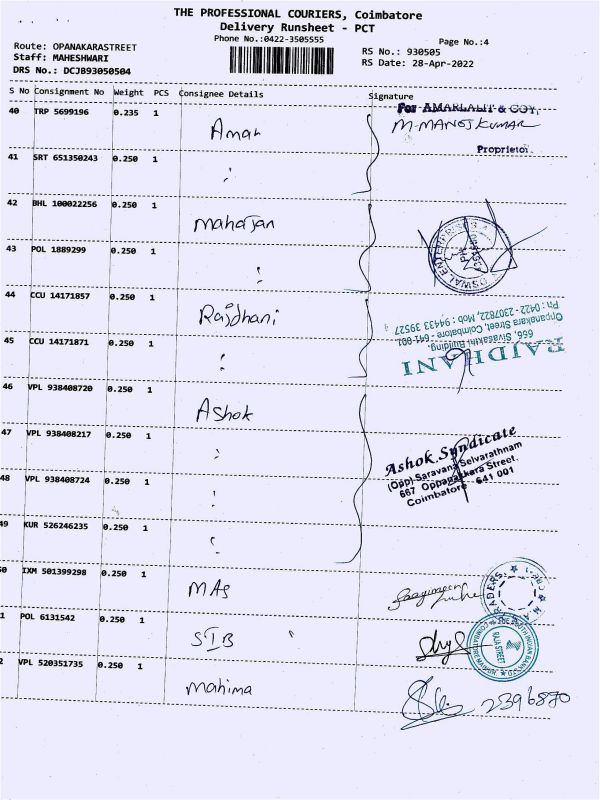 THE PROFESSIONAL COURIERS, Coimbatore
Delivery Runsheet - PCT
Phone No.:0422-3505555
Page No.:4
Route: OPANAKARASTREET
RS No.: 930505
Staff: MAHESHWARI
RS Date: 28-Apr-2022
DRS No.: DCJB93050504
S No Consignment No Weight PCS Consignee Details Signature
40 TRP 5699196 0.235 1 Aman
For AMARLALIT & COY,
M. MANOJ KUMAR
Proprietor
41 SRT 651350243 0.250 1 "
42 BHL 100022256 0.250 1 mahajan
43 POL 1889299 0.250 1 "
44 CCU 14171857 0.250 1 Rajdhani
45 CCU 14171871 0.250 1 "
RAJDHANI
666, Sivasakthi Building,
Oppanakara Street, Coimbatore - 641 001
Ph : 0422 - 2307822, Mob : 94433 39527
46 VPL 938408720 0.250 1 Ashok
47 VPL 938408217 0.250 1 "
Ashok Syndicate
(Opp) Saravana Selvarathnam
667 Oppanakkara Street.
Coimbatore 641 001
48 VPL 938408724 0.250 1 "
49 KUR 526246235 0.250 1 "
0 IXM 501399298 0.250 1 MAS
1 POL 6131542 0.250 1 SIB
RAJA STREET
2 VPL 520351735 0.250 1 mahima
2396870